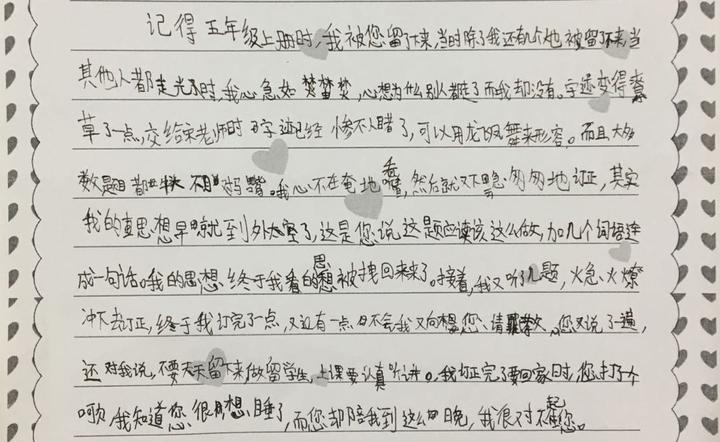 记得五年级上册时，我被您留了下来，当时除了我还有几个也被留了下来，当
其他人都走光了时，我心急如焚，心想为什么别人都走了而我却没有。字迹变得潦
草了一点，交给宋老师时字迹已经惨不人睹了，可以用龙飞凤舞来形容。而且大多
数题目都。我心不在奄地看，然后就又匆匆地订正，其实
我的真思想早就到外太空了，这是您说这题应该这么做，加几个词语连
成一句话。我的思想终于我看的思想被拽回来了。接着，我又听了几题，火急火燎
冲下去订正，终于我订完了一点，又还有一点不会我又向您请教，您又说了一遍，
还对我说，不要天天留下来，做留学生，上课要认真听讲。我订正完了要回家时，您打了个
哈欠，我知道您很想睡了，而您却陪我到这么晚，我很对不起您。